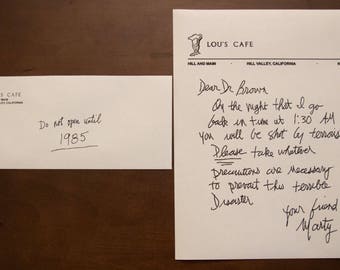 LOU'S CAFE
MAIN
VALLEY, CALIFORNIA
Do not open until
1985
LOU'S CAFE
HILL AND MAIN · HILL VALLEY, CALIFORNIA ·
Dear Dr Brown,
On the night that I go
back in time at 1:30 AM
you will be shot by terrorists
Please take whatever
precautions are necessary
to prevent this terrible
Disaster
Your friend
Marty